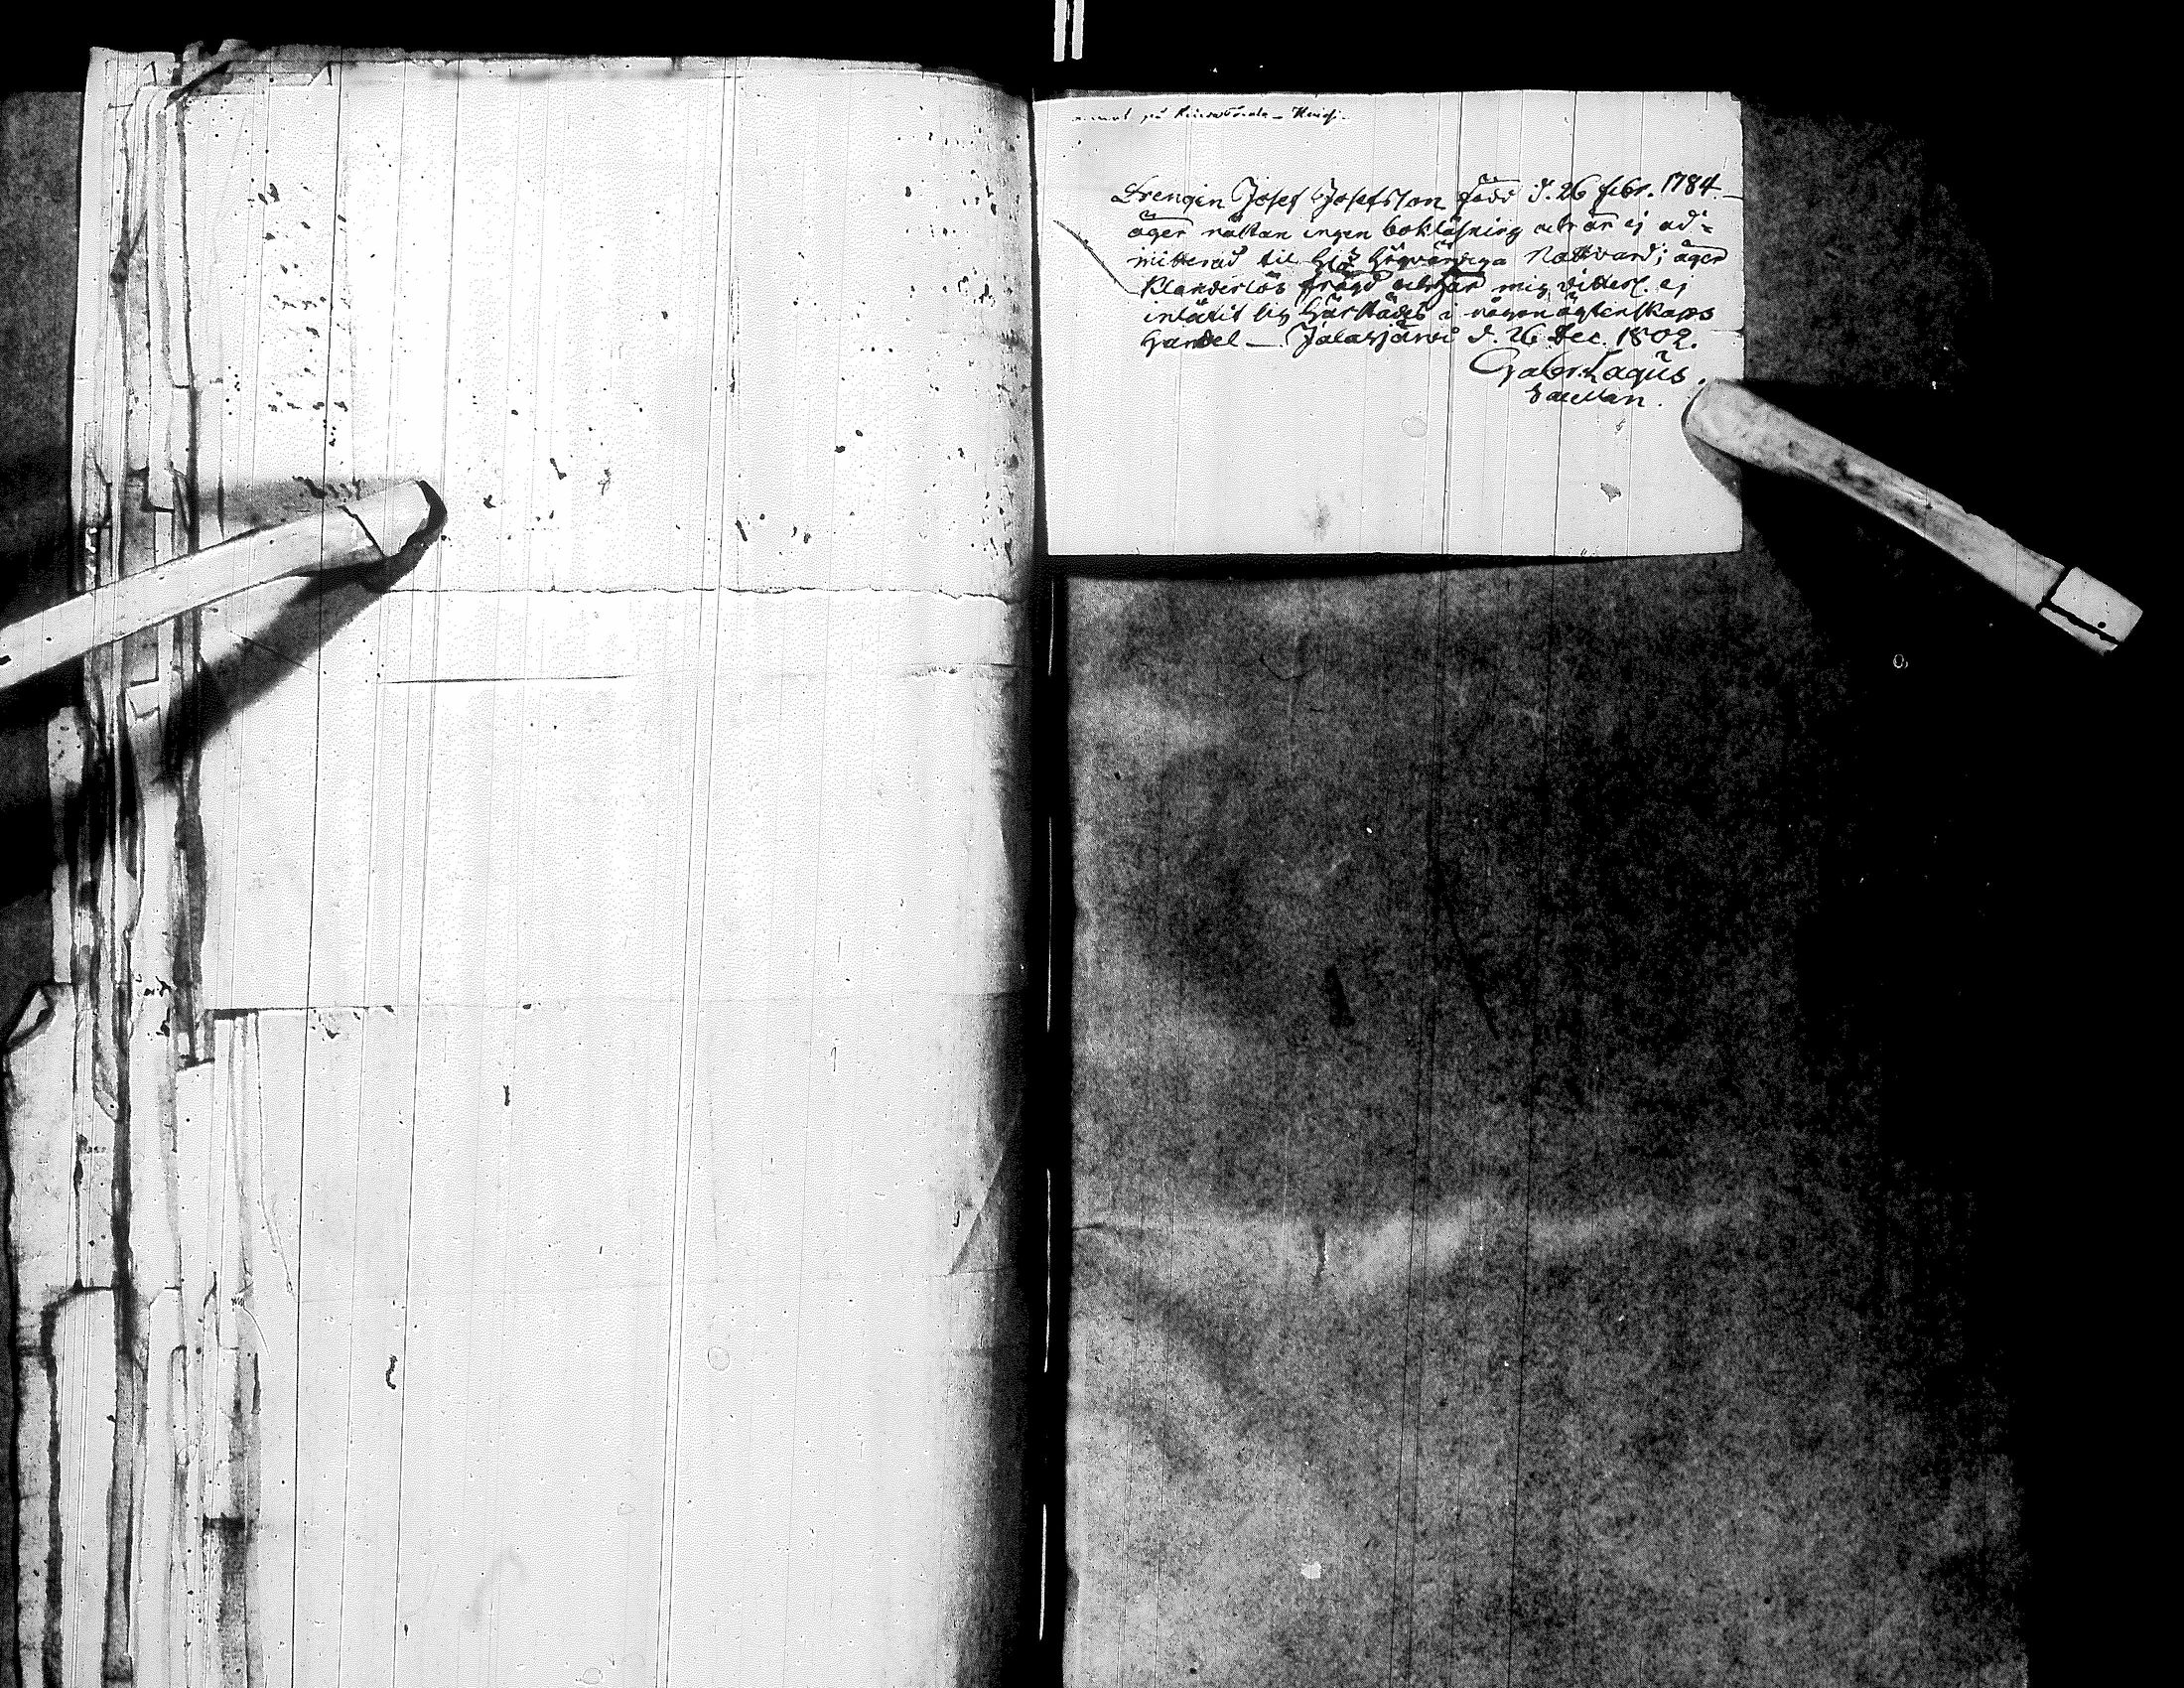 på
Drengen Josef Josefsson född d. 26 febr. 1784.
äger nästan ingen bokläsning och är ej ad-
mitterad til H: Högvärdiga Nattvard; äger
klanderlös frägd och har mig vitterl. ej
inlåtit sig härstädes i någon ägtenskaps
handel — Jalasjärvi d. 26 Dec. 1802.
Gabr. Lagus.
Sacellan.